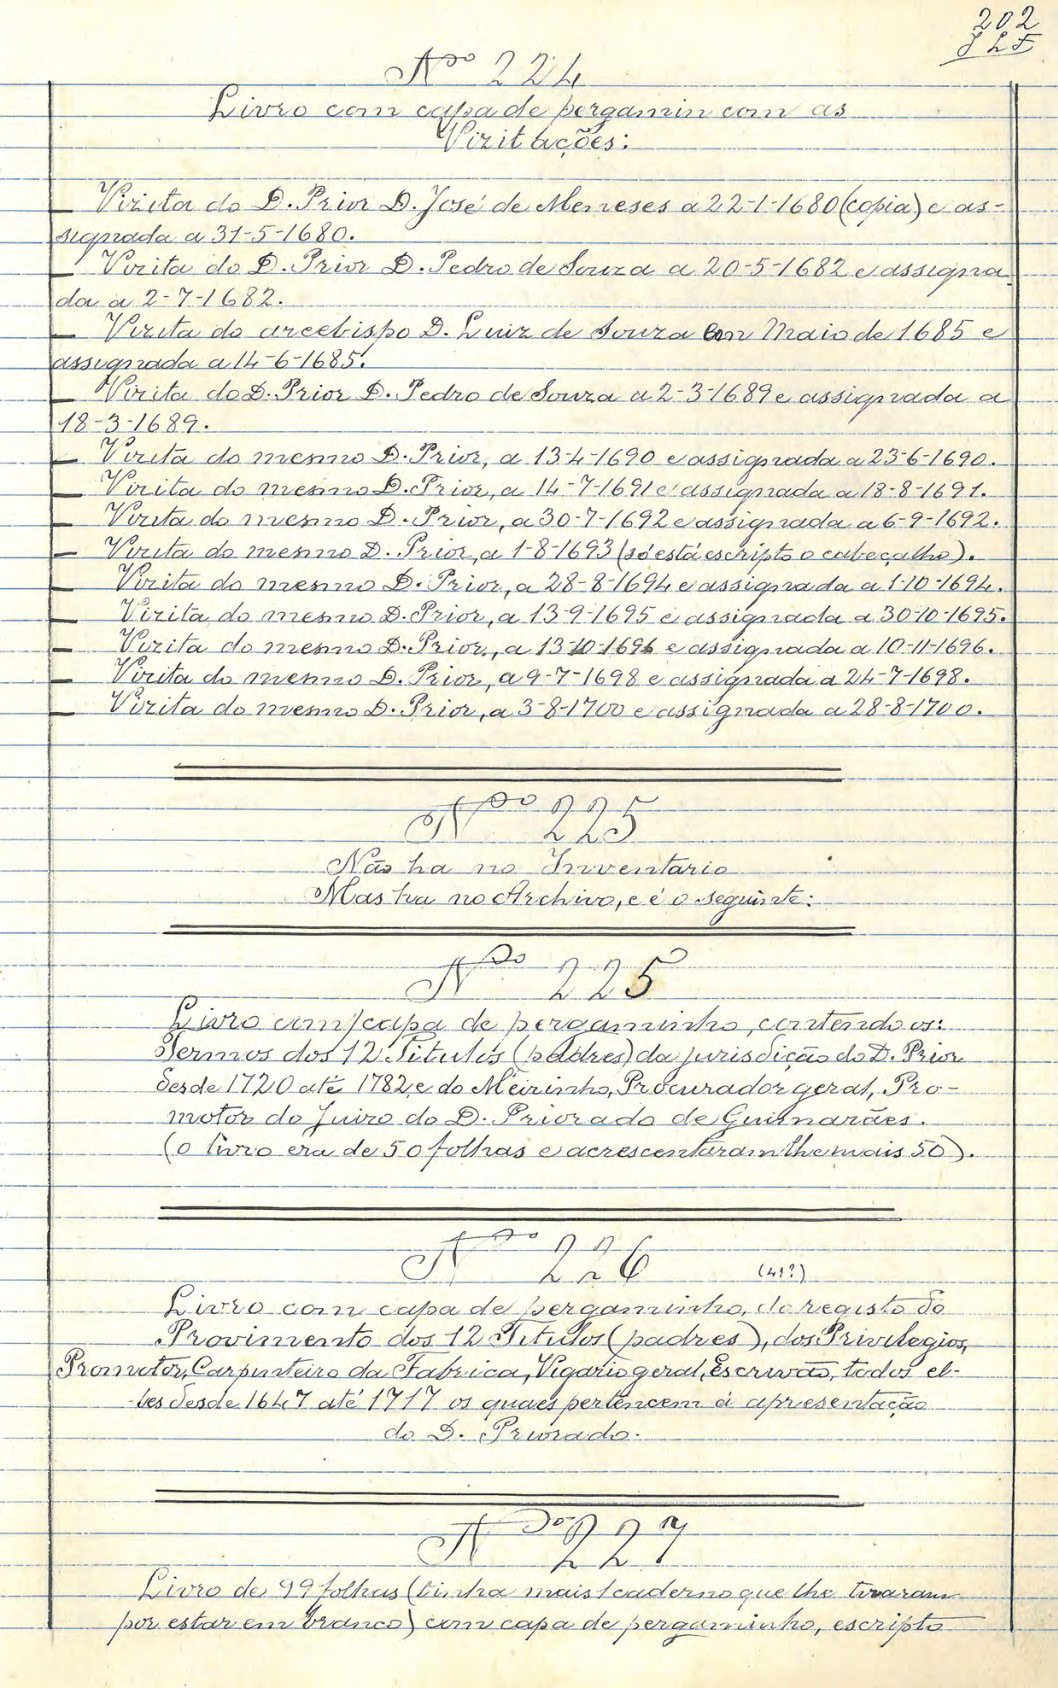 202
JLF
Nº 224
Livro com capa de pergamin com as
Vizitações:
— Vizita do D. Prior D. José de Meneses a 22-1-1680 (copia) e as-
signada a 31-5-1680.
— Vizita do D. Prior D. Pedro de Souza a 20-5-1682 e assigna
da a 2-7-1682.
— Vizita do arcebispo D. Luiz de Souza em Maio de 1685 e
assignada a 14-6-1685.
— Vizita do D. Prior D. Pedro de Souza a 2-3-1689 e assignada a
18-3-1689.
— Vizita do mesmo D. Prior, a 13-4-1690 e assignada a 23-6-1690.
— Vizita do mesmo D. Prior, a 14-7-1691 e assignada a 18-8-1691.
— Vizita do mesmo D. Prior, a 30-7-1692 e assignada a 6-9-1692.
— Vizita do mesmo D. Prior, a 1-8-1693 (só está escripto o cabeçalho).
— Vizita do mesmo D. Prior, a 28-8-1694 e assignada a 1-10-1694.
— Vizita do mesmo D. Prior, a 13-9-1695 e assignada a 30-10-1695.
— Vizita do mesmo D. Prior, a 13-10-1696 e assignada a 10-11-1696.
— Vizita do mesmo D. Prior, a 9-7-1698 e assignada a 24-7-1698.
— Vizita do mesmo D. Prior, a 3-8-1700 e assignada a 28-8-1700.
Nº 225
Não ha no Inventario
Mas ha no Archivo, e é o seguinte:
Nº 225
Livro com capa de pergaminho, contendo os:
Termos dos 12 Titulos (padres) da jurisdição do D. Prior
desde 1720 até 1782, e do Meirinho, Procurador geral, Pro-
motor do Juizo do D. Priorado de Guimarães.
(o livro era de 50 folhas e acrescentaram lhe mais 50).
Nº 226 (41?)
Livro com capa de pergaminho, do registo do
Provimento dos 12 Titulos (padres), dos Privilegios,
Promotor, Carpinteiro da Fabrica, Vigario geral, Escrivão, todos el-
les desde 1647 até 1717 os quaes pertencem á apresentação
do D. Priorado.
Nº 227
Livro de 99 folhas (tinha mais 1 caderno que lhe tiraram
por estar em branco) com capa de pergaminho, escripto